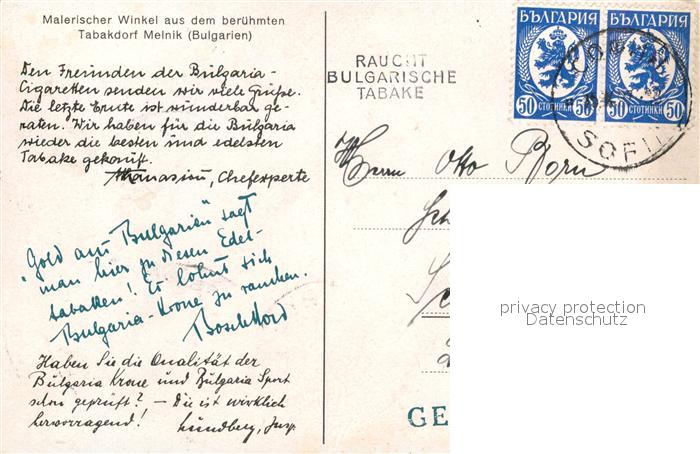 Malerischer Winkel aus dem berühmten
Tabakdorf Melnik (Bulgarien)
Den Freunden der Bulgaria-
Cigaretten senden wir viele Grüße.
Die letzte Ernte ist wunderbar ge-
raten. Wir haben für die Bulgaria
wieder die besten und edelsten
Tabake gekauft.
Athanasiou, Chefexperte
"Gold aus Bulgarien" sagt
man hier zu diesen Edel-
tabaken! Es lohnt sich
Bulgaria-Krone zu rauchen.
Haben Sie die Qualität der
Bulgaria Krone und Bulgaria Sport
schon geprüft? – Die ist wirklich
hervorragend! Lundberg, Insp.
RAUCHT
BULGARISCHE
TABAKE
БЪЛГАРИЯ БЪЛГАРИЯ
50 СТОТИНКИ 50 50 СТОТИНКИ 50
SOFI
Herrn Otto Born
privacy protection
Datenschutz
GE